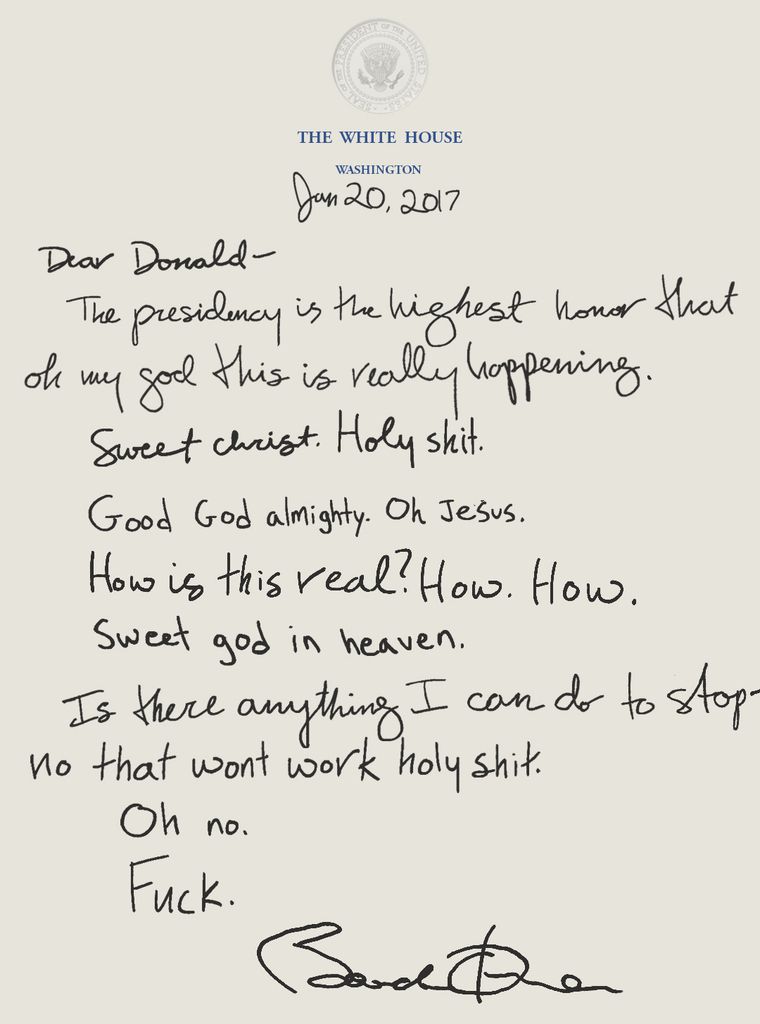 SEAL OF THE PRESIDENT OF THE UNITED STATES
THE WHITE HOUSE
WASHINGTON
Jan 20, 2017
Dear Donald—
The presidency is the highest honor that
oh my god this is really happening.
Sweet christ. Holy shit.
Good God almighty. Oh Jesus.
How is this real? How. How.
Sweet god in heaven.
Is there anything I can do to stop-
no that wont work holy shit.
Oh no.
Fuck.